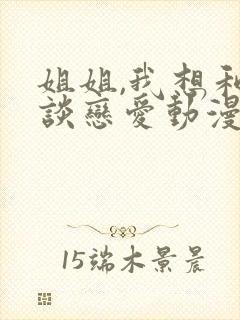 姐姐,我想和
談戀愛動漫
15端木景晨